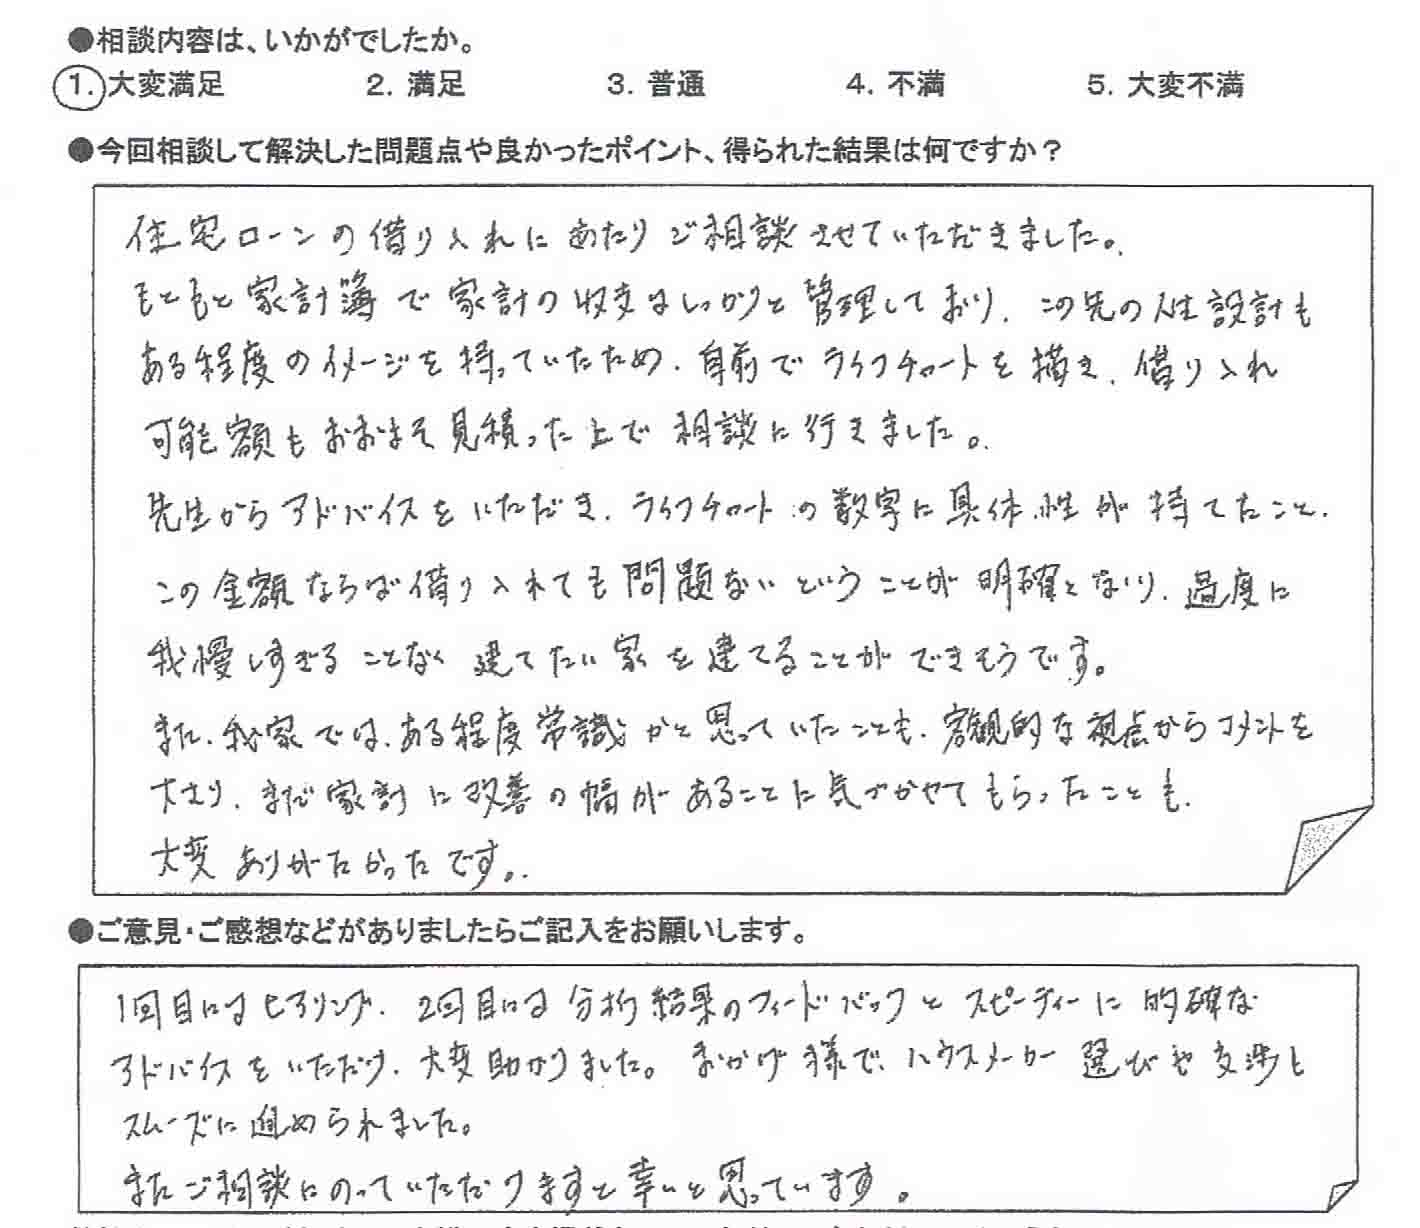 ●相談内容は、いかがでしたか。
1. 大変満足 2. 満足 3. 普通 4. 不満 5. 大変不満
●今回相談して解決した問題点や良かったポイント、得られた結果は何ですか？
住宅ローンの借り入れにあたりご相談させていただきました。
もともと家計簿で家計の収支はしっかりと管理しており、この先の人生設計も
ある程度のイメージを持っていたため、自前でライフチャートを描き、借り入れ
可能額もおおまそ見積った上で相談に行きました。
先生からアドバイスをいただき、ライフチャートの数字に具体性が持てたこと、
この金額ならば借り入れても問題ないということが明確となり、過度に
我慢しすぎることなく建てたい家を建てることができそうです。
また、我家では、ある程度常識かと思っていたことも、客観的な視点からコメントを
大さり、まだ家計に改善の幅があることに気づかせてもらったことも、
大変ありがたかったです。
●ご意見・ご感想などがありましたらご記入をお願いします。
1回目にはヒアリング、2回目には分析結果のフィードバックとスピーディーに的確な
アドバイスをいただけ、大変助かりました。おかげ様で、ハウスメーカー選びや交渉も
スムーズに進められました。
またご相談にのっていただけますと幸いと思っています。